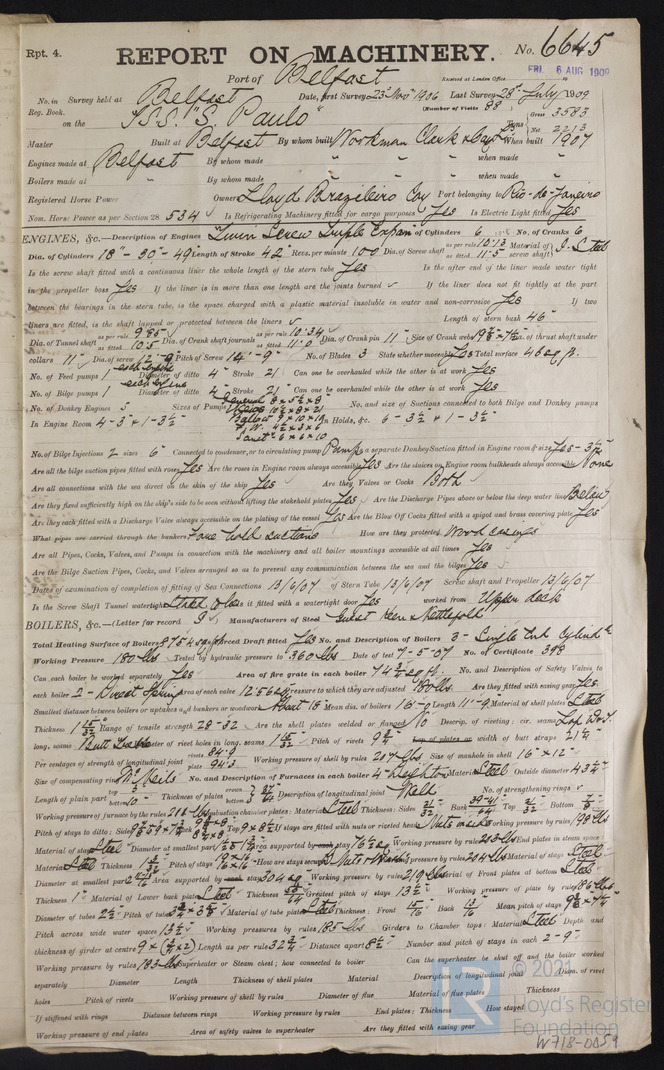 Rpt. 4.
REPORT ON MACHINERY. No. 6645
Port of Belfast
Received at London Office FRI. 6 AUG 1909
No. in Survey held at Belfast Date, first Survey 23rd Novr 1906 Last Survey 28th July 1909
Reg. Book. (Number of Visits 88)
on the "T.S.S. "S. Paulo" Tons Gross 3583 Net 2213
Master Built at Belfast By whom built Workman Clark & Coy Ld When built 1907
Engines made at Belfast By whom made " " " when made "
Boilers made at " By whom made " " " when made "
Registered Horse Power Owners Lloyd Brazileiro Coy Port belonging to Rio-de-Janeiro
Nom. Horse Power as per Section 28 534 Is Refrigerating Machinery fitted for cargo purposes Yes Is Electric Light fitted Yes
ENGINES, &c.—Description of Engines Twin Screw Triple Expann No. of Cylinders 6 No. of Cranks 6
Dia. of Cylinders 18"-30"-49" Length of Stroke 42" Revs. per minute 100 Dia. of Screw shaft as per rule 10.13 as fitted 11.5 Material of screw shaft I. Steel
Is the screw shaft fitted with a continuous liner the whole length of the stern tube Yes Is the after end of the liner made water tight
in the propeller boss Yes If the liner is in more than one length are the joints burned ✓ If the liner does not fit tightly at the part
between the bearings in the stern tube, is the space charged with a plastic material insoluble in water and non-corrosive Yes If two
liners are fitted, is the shaft lapped or protected between the liners ✓ Length of stern bush 46"
Dia. of Tunnel shaft as per rule 9.85 as fitted 10.5 Dia. of Crank shaft journals as per rule 10.34 as fitted 11.0 Dia. of Crank pin 11" Size of Crank webs Dia. of thrust shaft under
collars 11" Dia. of screw 12'-9" Pitch of Screw 14'-9" No. of Blades 3 State whether moveable Yes Total surface 46 sq ft.
No. of Feed pumps 1 each engine Diameter of ditto 4" Stroke 21 Can one be overhauled while the other is at work Yes
No. of Bilge pumps 1 each engine Diameter of ditto 4" Stroke 21 Can one be overhauled while the other is at work Yes
No. of Donkey Engines 5 Sizes of Pumps No. and size of Suctions connected to both Bilge and Donkey pumps
In Engine Room 4-3" & 1-3½" In Holds, &c. 6-3½" & 1-3½"
Sanit 6 x 6 x 10
No. of Bilge Injections 2 sizes 6" Connected to condenser, or to circulating pump Pump Is a separate Donkey Suction fitted in Engine room & size Yes-3½"
Are all the bilge suction pipes fitted with roses Yes Are the roses in Engine room always accessible Yes Are the sluices on Engine room bulkheads always accessible None
Are all connections with the sea direct on the skin of the ship Yes Are they Valves or Cocks Both
Are they fixed sufficiently high on the ship's side to be seen without lifting the stokehold plates Yes Are the Discharge Pipes above or below the deep water line Below
Are they each fitted with a Discharge Valve always accessible on the plating of the vessel Yes Are the Blow Off Cocks fitted with a spigot and brass covering plate Yes
What pipes are carried through the bunkers Fore hold suctions How are they protected Wood casings
Are all Pipes, Cocks, Valves, and Pumps in connection with the machinery and all boiler mountings accessible at all times Yes
Are the Bilge Suction Pipes, Cocks, and Valves arranged so as to prevent any communication between the sea and the bilges Yes
Dates of examination of completion of fitting of Sea Connections 13/6/07 of Stern Tube 13/6/07 Screw shaft and Propeller 13/6/07
Is the Screw Shaft Tunnel watertight Is it fitted with a watertight door Yes worked from Upper deck
BOILERS, &c.—(Letter for record S) Manufacturers of Steel Guest Keen & Nettlefold
Total Heating Surface of Boilers 8754 sq ft Is Forced Draft fitted Yes No. and Description of Boilers 3-Single End Cylindl
Working Pressure 180 lbs Tested by hydraulic pressure to 360 lbs Date of test 7-5-07 No. of Certificate 398
Can each boiler be worked separately Yes Area of fire grate in each boiler 74¾ sq ft. No. and Description of Safety Valves to
each boiler 2-Direct Spring Area of each valve 12.56 Pressure to which they are adjusted 180 lbs Are they fitted with easing gear Yes
Smallest distance between boilers or uptakes and bunkers or woodwork About 18 Mean dia. of boilers Length 11'-9" Material of shell plates Steel
Thickness 1 15/32 Range of tensile strength 28-32 Are the shell plates welded or flanged No Descrip. of riveting: cir. seams
long. seams Diameter of rivet holes in long. seams 1 15/32 Pitch of rivets Lap of plates or width of butt straps 21¼"
Per centages of strength of longitudinal joint rivets 84.9 plate 84.3 Working pressure of shell by rules 207 lbs Size of manhole in shell 16" x 12"
Size of compensating ring McNeils No. and Description of Furnaces in each boiler 4-Deighton Material Steel Outside diameter 43¼"
Length of plain part top bottom Thickness of plates crown bottom Description of longitudinal joint Weld No. of strengthening rings ✓
Working pressure of furnace by the rules 211 lbs Combustion chamber plates: Material Steel Thickness: Sides 21/32 Back Top 21/32 Bottom
Pitch of stays to ditto: Sides Back Top 9 x 8½ If stays are fitted with nuts or riveted heads Nuts inside Working pressure by rules 198 lbs
Material of stays Steel Diameter at smallest part Area supported by each stay Working pressure by rules 253 lbs End plates in steam space:
Material Steel Thickness Pitch of stays How are stays secured Working pressure by rules 204 lbs Material of stays Steel
Diameter at smallest part Area supported by each stay 304 sq Working pressure by rules 219 lbs Material of Front plates at bottom Steel
Thickness 1" Material of Lower back plate Steel Thickness Greatest pitch of stays 13½" Working pressure of plate by rules 186 lbs
Diameter of tubes 2½" Pitch of tubes Material of tube plates Steel Thickness: Front 15/16 Back 13/16 Mean pitch of stays
Pitch across wide water spaces 13½" Working pressures by rules 185 lbs Girders to Chamber tops: Material Steel Depth and
thickness of girder at centre 9 x (¾ x 2) Length as per rule 32¾ Distance apart 8½" Number and pitch of stays in each 2-9"
Working pressure by rules 183 lbs Superheater or Steam chest; how connected to boiler Can the superheater be shut off and the boiler worked
separately Diameter Length Thickness of shell plates Material Description of longitudinal joint Diam. of rivet
holes Pitch of rivets Working pressure of shell by rules Diameter of flue Material of flue plates Thickness
If stiffened with rings Distance between rings Working pressure by rules End plates: Thickness How stayed
Working pressure of end plates Area of safety valves to superheater Are they fitted with easing gear
© 2021
Lloyd's Register
Foundation
W718-0059